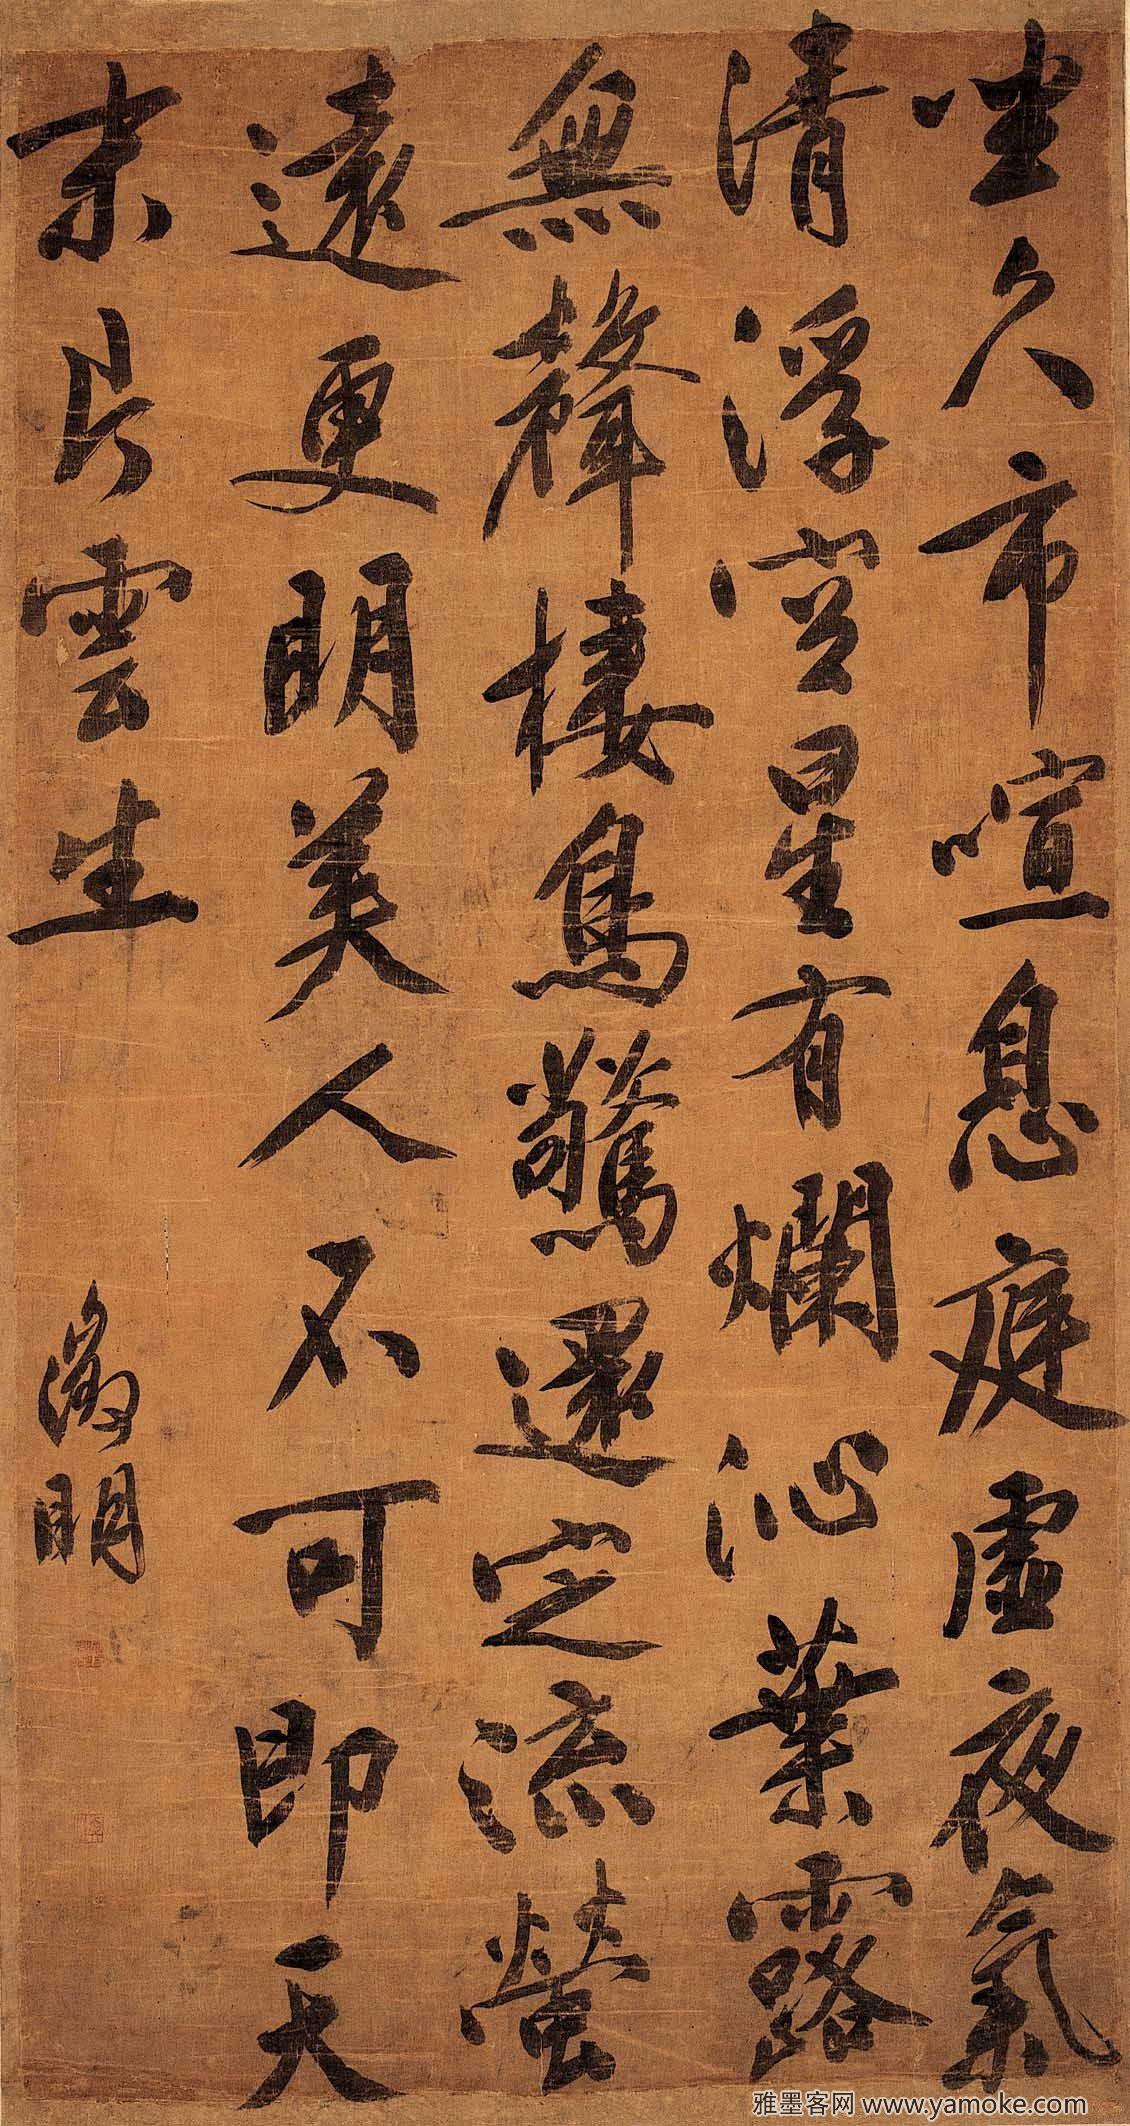 坐久市喧息庭虛夜氣
清浮空星有爛沁葉露
無聲棲鳥驚還定流螢
遠更明美人不可即天
末片雲生
徵明
雅墨客网 www.yamoke.com